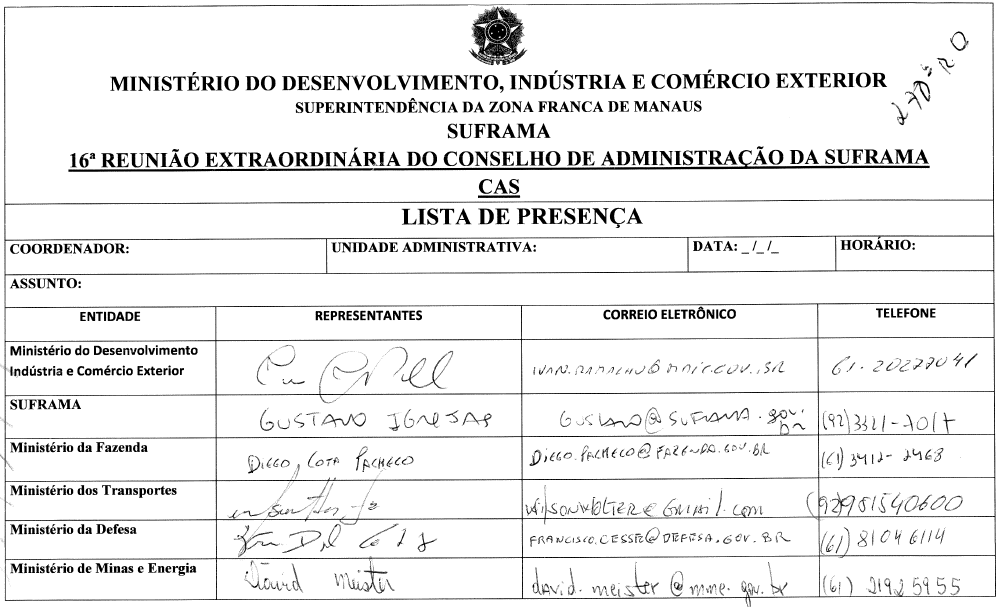 270ª R.O
MINISTÉRIO DO DESENVOLVIMENTO, INDÚSTRIA E COMÉRCIO EXTERIOR
SUPERINTENDÊNCIA DA ZONA FRANCA DE MANAUS
SUFRAMA
16ª REUNIÃO EXTRAORDINÁRIA DO CONSELHO DE ADMINISTRAÇÃO DA SUFRAMA
CAS
LISTA DE PRESENÇA
COORDENADOR: UNIDADE ADMINISTRATIVA: DATA: _/_/_ HORÁRIO:
ASSUNTO:
ENTIDADE REPRESENTANTES CORREIO ELETRÔNICO TELEFONE
Ministério do Desenvolvimento
Indústria e Comércio Exterior IVAN.RAMALHO@MDIC.GOV.BR 61-20277041
SUFRAMA GUSTAVO IGREJAS GUSTAVO@SUFRAMA.gov.br (92)3321-7017
Ministério da Fazenda DIEGO COTA PACHECO DIEGO.PACHECO@FAZENDA.GOV.BR (61)3412-2468
Ministério dos Transportes wilsonwolter@gmail.com (92)981540600
Ministério da Defesa FRANCISCO.CESSE@DEFESA.GOV.BR (61)81046114
Ministério de Minas e Energia David Meister david.meister@mme.gov.br (61) 21925955